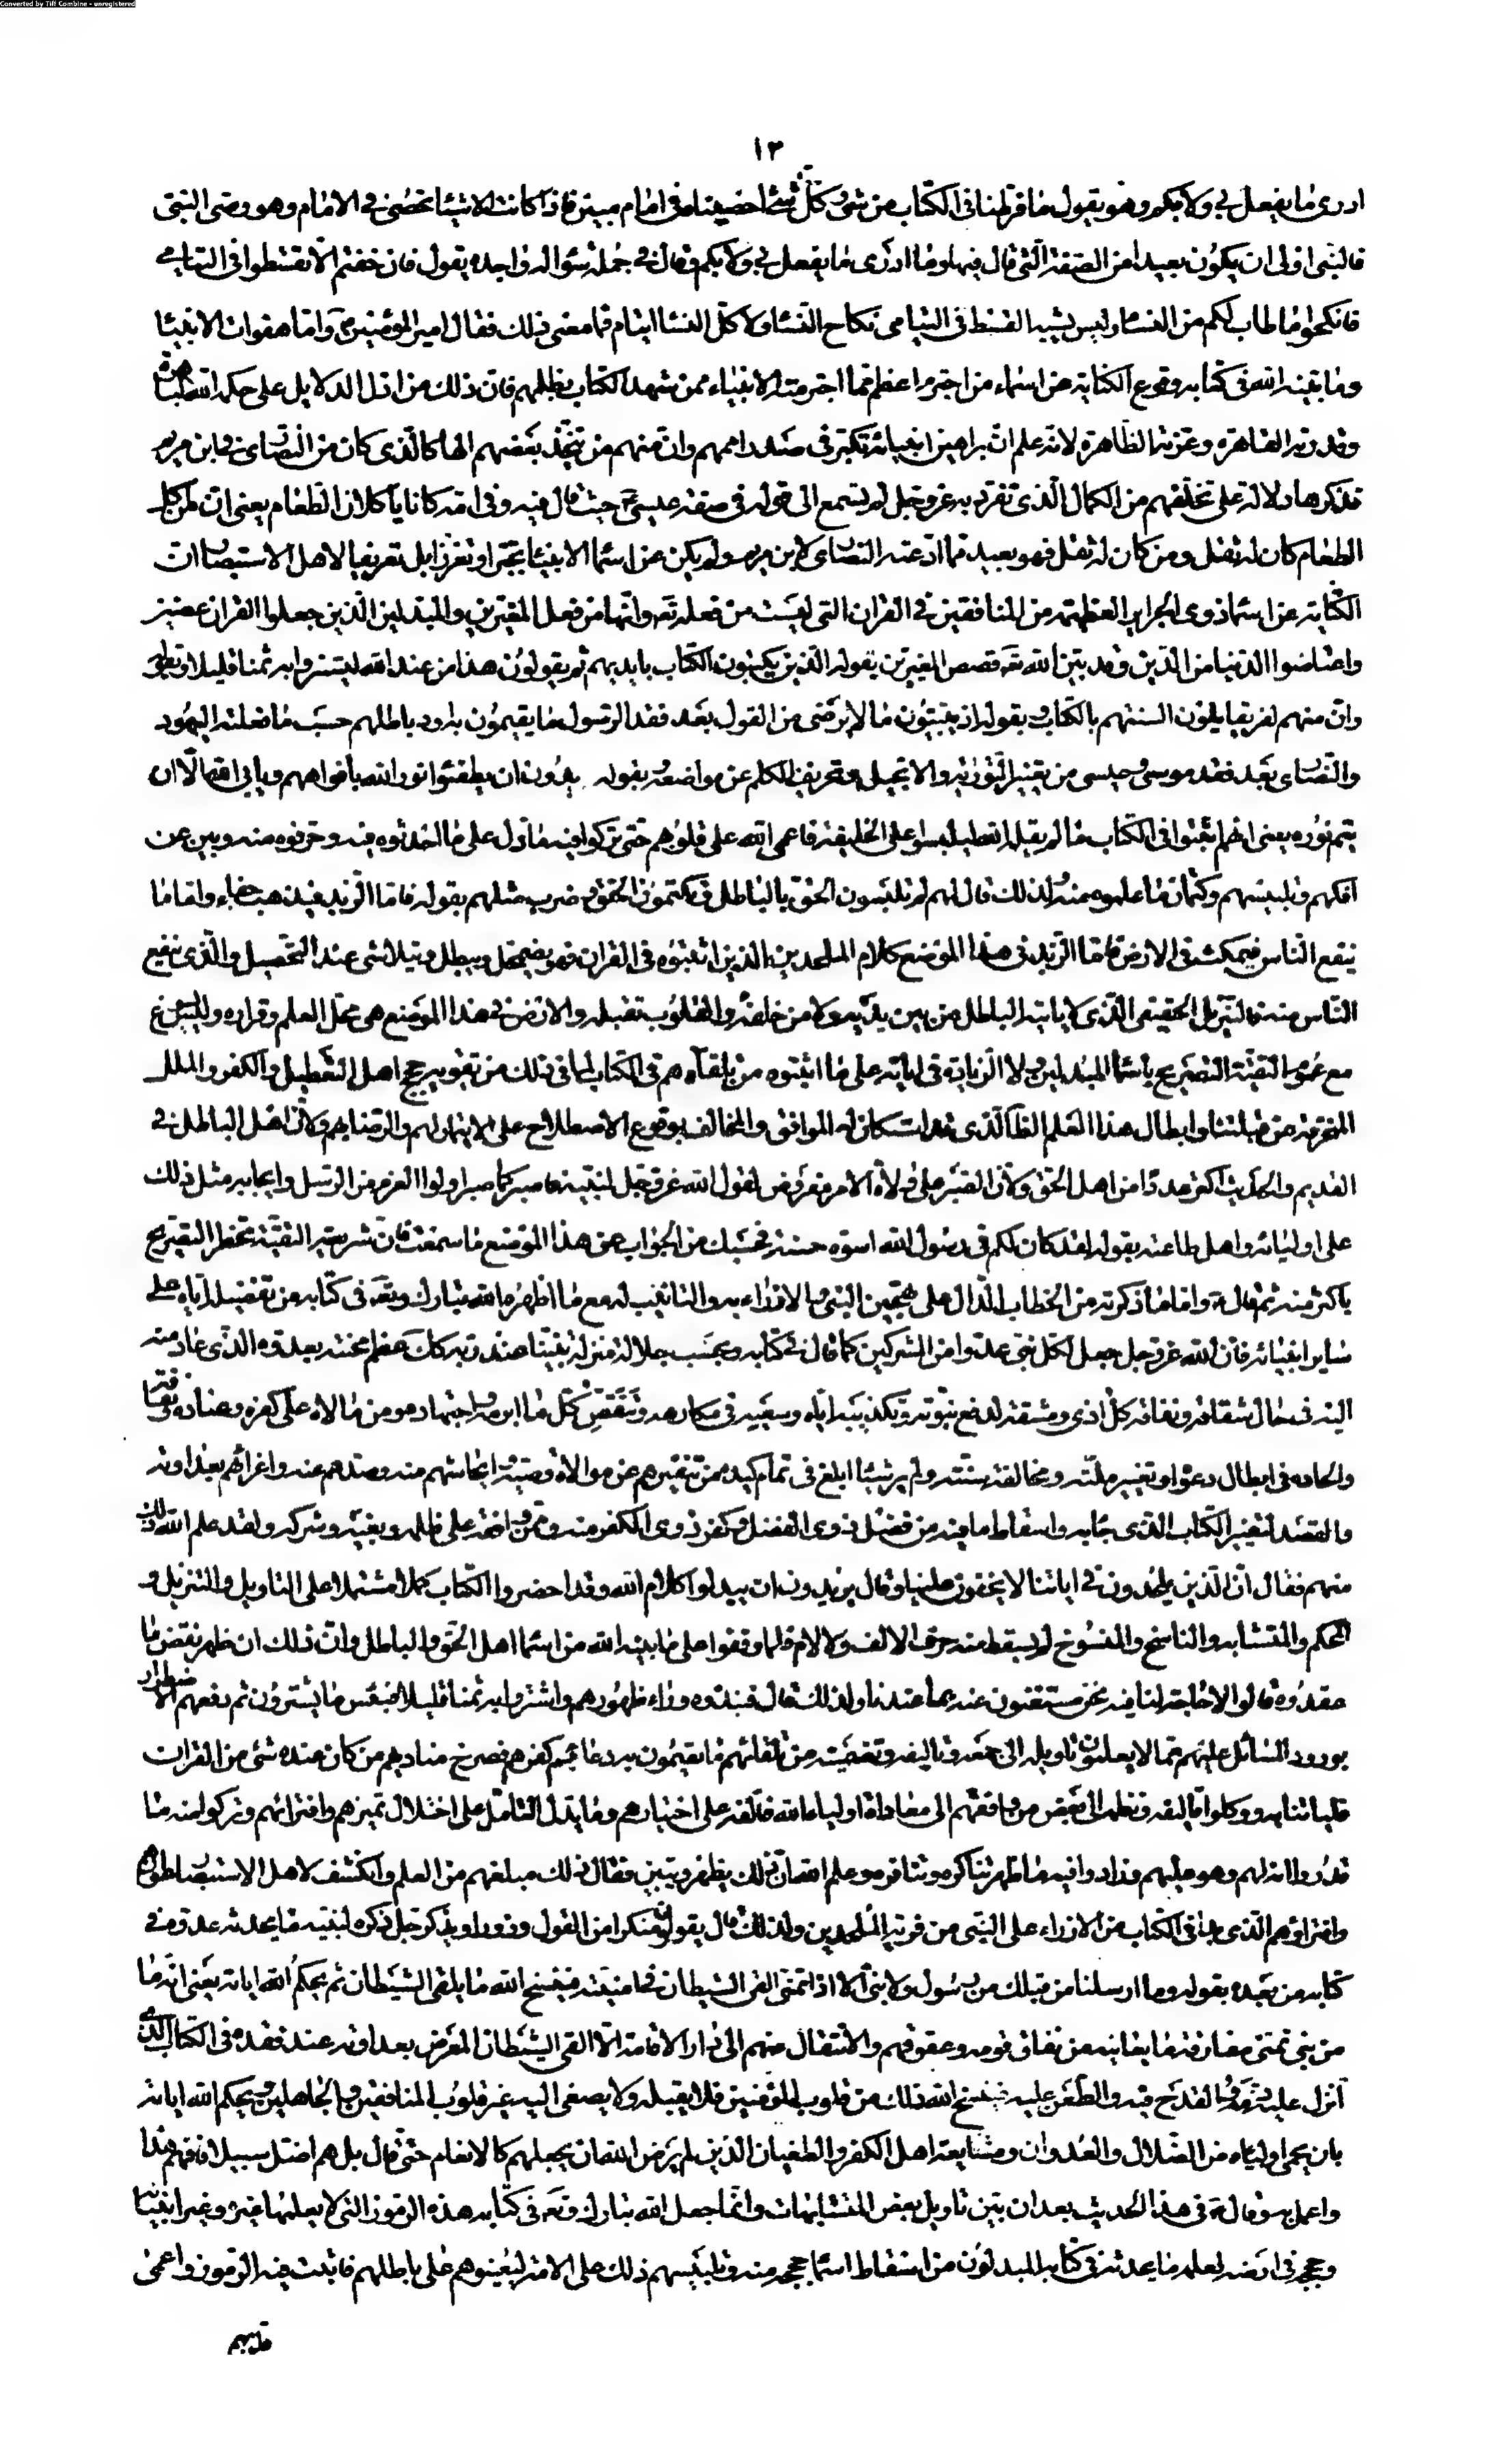 Converted by Tiff Combine - unregistered
١٣
ادرى ما يفعل بي ولا بكم وهو يقول ما فرطنا في الكتاب من شئ وكل شئ احصيناه في امام مبين فاذا كانت الاشياء تحصى في الامام وهو وصى النبى
فالنبى اولى ان يكون بعيدا من الصفة التى قال فيها وما ادرى ما يفعل بي ولا بكم وقال في جملة سؤاله واجده يقول فان خفتم الا تقسطوا فى اليتامى
فانكحوا ما طاب لكم من النساء وليس يشبه القسط فى اليتامى نكاح النساء ولا كل النساء ايتام فما معنى ذلك فقال امير المؤمنين ع واما هفوات الانبيا
وما بينه الله فى كتابه ووقوع الكناية عن اسماء من اجترم اعظم مما اجترمته الانبياء ممن شهد الكتاب بظلمهم فان ذلك من ادل الدلايل على حكمة الله الباهرة
وقدرته القاهرة وعزته الظاهرة لانه علم ان براهين انبيائه تكبر فى صدور اممهم وان منهم من يتخذ بعضهم الها كالذى كان من النصارى فى ابن مريم
فذكرها دلالة على تخلفهم من الكمال الذى تفرد به عز وجل الم تسمع الى قوله فى صفة عيسى ع حيث قال فيه وفى امه كانا ياكلان الطعام يعنى ان من اكل
الطعام كان له ثفل ومن كان له ثفل فهو بعيد مما ادعته النصارى لابن مريم ولم يكن عن اسماء الانبياء تجبرا وتعززا بل تعريفا لاهل الاستبصار ان
الكناية عن اسماء ذوى الجراير العظيمة من المنافقين فى القران التى ليست من فعله تع وانها من فعل المغيرين والمبدلين الذين جعلوا القران عضين
واعتاضوا الدنيا من الدين وقد بين الله تع قصص المغيرين بقوله الذين يكتبون الكتاب بايديهم ثم يقولون هذا من عند الله ليشتروا به ثمنا قليلا وبقوله
وان منهم لفريقا يلون السنتهم بالكتاب وبقوله اذ يبيتون ما لا يرضى من القول بعد فقد الرسول ما يقيمون به اود باطلهم حسب ما فعلته اليهود
والنصارى بعد فقد موسى وعيسى من تغيير التورية والانجيل وتحريف الكلم عن مواضعه وبقوله يريدون ان يطفئوا نور الله بافواههم ويابى الله الا ان
يتم نوره يعنى انهم اثبتوا فى الكتاب ما لم يقله الله ليلبسوا على الخليقة فاعمى الله على قلوبهم حتى تركوا فيه ما دل على ما احدثوه فيه وحرفوه منه وبين عن
افكهم وتلبيسهم وكتمان ما علموه منه ولذلك قال لهم لم تلبسون الحق بالباطل وتكتمون الحق وضرب مثلهم بقوله فاما الزبد فيذهب جفاء واما ما
ينفع الناس فيمكث فى الارض فاما الزبد فى هذا الموضع كلام الملحدين الذين اثبتوه فى القران فهو يضمحل ويبطل ويتلاشى عند التحصيل والذى ينفع
الناس منه فالتنزيل الحقيقى الذى لا ياتيه الباطل من بين يديه ولا من خلفه والقلوب تقبله والارض فى هذا الموضع هى محل العلم وقراره وليس يسوغ
مع عموم التقية التصريح باسماء المبدلين ولا الزيادة فى اياته على ما اثبتوه من تلقآءهم فى الكتاب لما فى ذلك من تقوية حجج اهل التعطيل والكفر والملل
المنحرفة عن قبلتنا وابطال هذا العلم الظاهر الذى قد استكان له الموافق والمخالف بوقوع الاصطلاح على الايتمار لهم والرضا بهم ولان اهل الباطل فى
القديم والحديث اكثر عددا من اهل الحق ولان الصبر على ولاة الامر مفروض لقول الله عز وجل لنبيه فاصبر كما صبر اولوا العزم من الرسل وايجابه مثل ذلك
على اوليائه واهل طاعته بقوله لقد كان لكم فى رسول الله اسوة حسنة فحسبك من الجواب عن هذا الموضع ما سمعت فان شريعة التقية تحظر التصريح
باكثر منه ثم قال ع واما ما ذكرته من الخطاب الدال على تهجين النبى والازراء به والتانيب له مع ما اظهره الله تبارك وتع فى كتابه من تفضيله اياه على
ساير انبيائه فان الله عز وجل جعل لكل نبى عدوا من المشركين كما قال فى كتابه وبحسب جلالة منزلة نبينا عند ربه كان عظم محنته بعدوه الذى عاد منه
اليه فى حال شقاقه ونفاقه كل اذى ومشقة لدفع نبوته وتكذيبه اياه وسعيه فى مكارهه ونقض كل ما ابرمه واجتهاده ومن مالاه على كفره وعناده ونفاقه
والحاده فى ابطال دعواه وتغيير ملته ومخالفة سنته ولم ير شيئا ابلغ فى تمام كيده من تنفيرهم عن موالاة وصيه وايحاشهم منه وصدهم عنه واغرائهم بعداوته
والقصد لتغيير الكتاب الذى جاء به واسقاط ما فيه من فضل ذوى الفضل وكفر ذوى الكفر منه وممن وافقه على ظلمه وبغيه وشركه ولقد علم الله ذلك
منهم فقال ان الذين يلحدون فى اياتنا لا يخفون علينا وقال يريدون ان يبدلوا كلام الله ولقد احضروا الكتاب كملا مشتملا على التاويل والتنزيل و
المحكم والمتشابه والناسخ والمنسوخ لم يسقط منه حرف الالف ولا لام فلما وقفوا على ما بينه الله من اسماء اهل الحق والباطل وان ذلك ان ظهر نقض ما
عقدوه قالوا لا حاجة لنا فيه نحن مستغنون عنه بما عندنا ولذلك قال فنبذوه وراء ظهورهم واشتروا به ثمنا قليلا فبئس ما يشترون ثم دفعهم الاضطرار
بورود المسائل عليهم مما لا يعلمون تاويله الى جمعه وتاليفه وتضمينه من تلقائهم ما يقيمون به دعائم كفرهم فصرخ مناديهم من كان عنده شئ من القران
فلياتنا به ووكلوا تاليفه ونظمه الى بعض من وافقهم الى معاداة اولياء الله فالفه على اختيارهم وما يدل المتامل على اختلال تميزهم وافترائهم وتركوا منه ما
قدروا انه لهم وهو عليهم وزادوا فيه ما ظهر تناكره وتنافره وعلم الله ان ذلك يظهر ويتبين فقال ذلك مبلغهم من العلم وانكشف لاهل الاستبصار عوارهم
وافتراؤهم والذى بدا فى الكتاب من الازراء على النبى من فرية الملحدين ولذلك قال يقولون منكرا من القول وزورا ويذكر جل ذكره لنبيه ما يحدثه عدوه فى
كتابه من بعده بقوله وما ارسلنا من قبلك من رسول ولا نبى الا اذا تمنى القى الشيطان فى امنيته فينسخ الله ما يلقى الشيطان ثم يحكم الله اياته يعنى انه ما
من نبى تمنى مفارقة ما يعانيه من نفاق قومه وعقوقهم والانتقال عنهم الى دار الاقامة الا القى الشيطان المعرض بعداوته عند فقده فى الكتاب الذى
انزل عليه ذمه والقدح فيه والطعن عليه فينسخ الله ذلك من قلوب المؤمنين فلا تقبله ولا يصغى اليه غير قلوب المنافقين والجاهلين ويحكم الله اياته
بان يحمى اولياءه من الضلال والعدوان ومشايعة اهل الكفر والطغيان الذين لم يرض الله ان يجعلهم كالانعام حتى قال بل هم اضل سبيلا فافهم هذا
واعمل به وقال ع فى هذا الحديث بعد ان بين تاويل بعض المتشابهات وانما جعل الله تبارك وتع فى كتابه هذه الرموز التى لا يعلمها غيره وغير انبيائه
وحججه فى ارضه لعلمه ما يحدثه فى كتابه المبدلون من اسقاط اسماء حججه منه وتلبيسهم ذلك على الامة ليعينوهم على باطلهم فاثبت فيه الرموز واعمى
قلوبهم